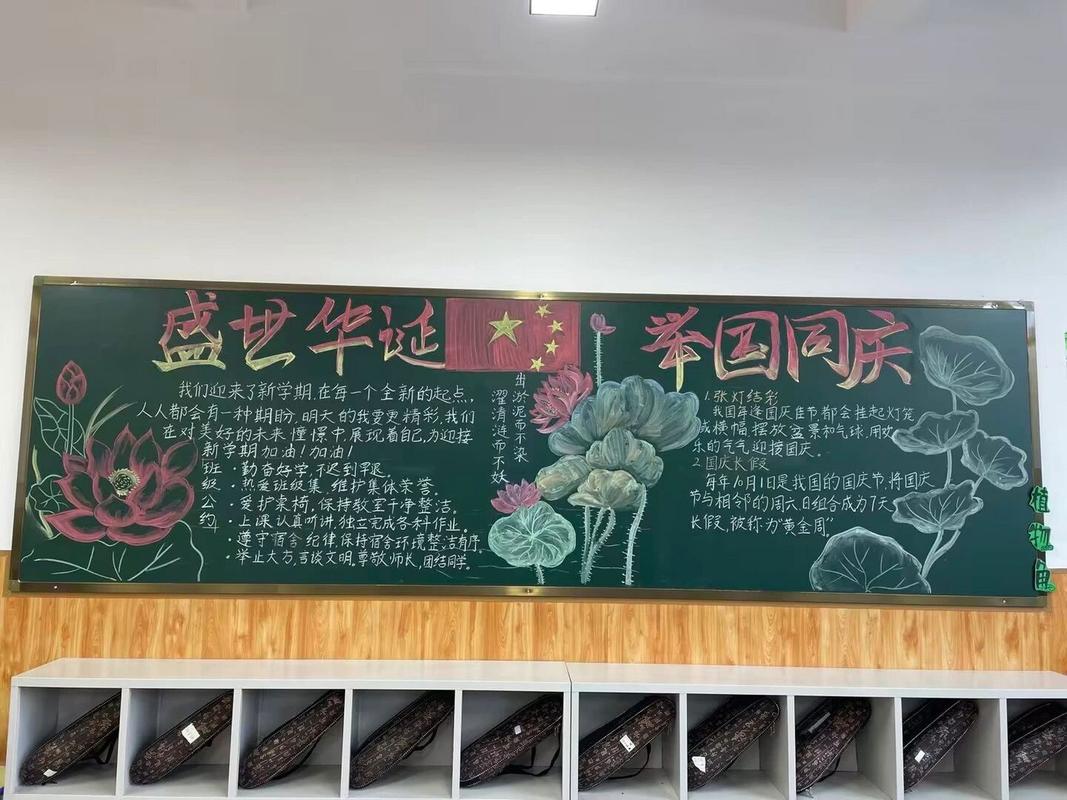 盛世华诞
举国同庆
我们迎来了新学期,在每一个全新的起点,
人人都会有一种期盼,明天的我要更精彩,我们
在对美好的未来憧憬中,展现着自己,为迎接
新学期加油!加油!
班级公约
·勤奋好学,不迟到早退。
·热爱班级集,维护集体荣誉。
·爱护桌椅,保持教室干净整洁。
·上课认真听讲,独立完成各科作业。
·遵守宿舍纪律,保持宿舍环境整洁有序。
·举止大方,言谈文明,尊敬师长,团结同学。
出淤泥而不染
濯清涟而不妖
1.张灯结彩
我国每逢国庆佳节都会挂起灯笼
或横幅,摆放盆景和气球,用欢
乐的气气迎接国庆。
2.国庆长假
每年10月1日是我国的国庆节,将国庆
节与相邻的周六、日组合成为7天
长假,被称为“黄金周”
植物角